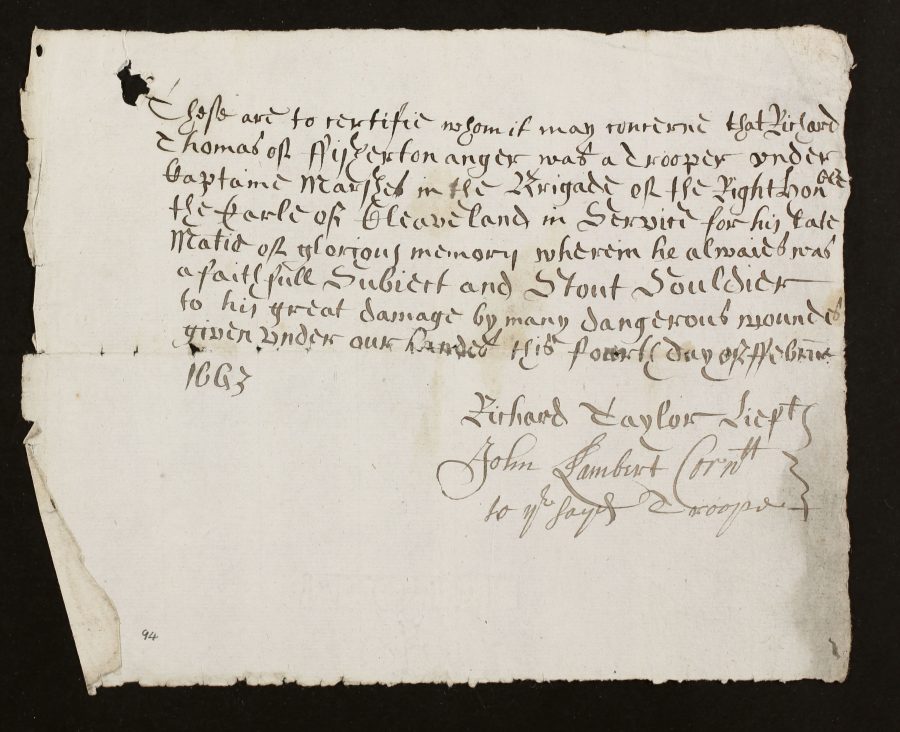 These are to certifie whom it may concerne that Richard
Thomas of ffisherton anger was a Trooper vnder
Captaine Marshes in the Brigade of the Right Honble
the Earle of Cleaveland in Service for his Late
Matie of glorious memory wherein he alwaies was
a faithfull Subiect and Stout Souldier
to his great damage by many dangerous woundes
given vnder our handes this fourth day of ffebrua
1663
Richard Taylor Liept
John Lambert Corntt
to ye sayd Troope
94